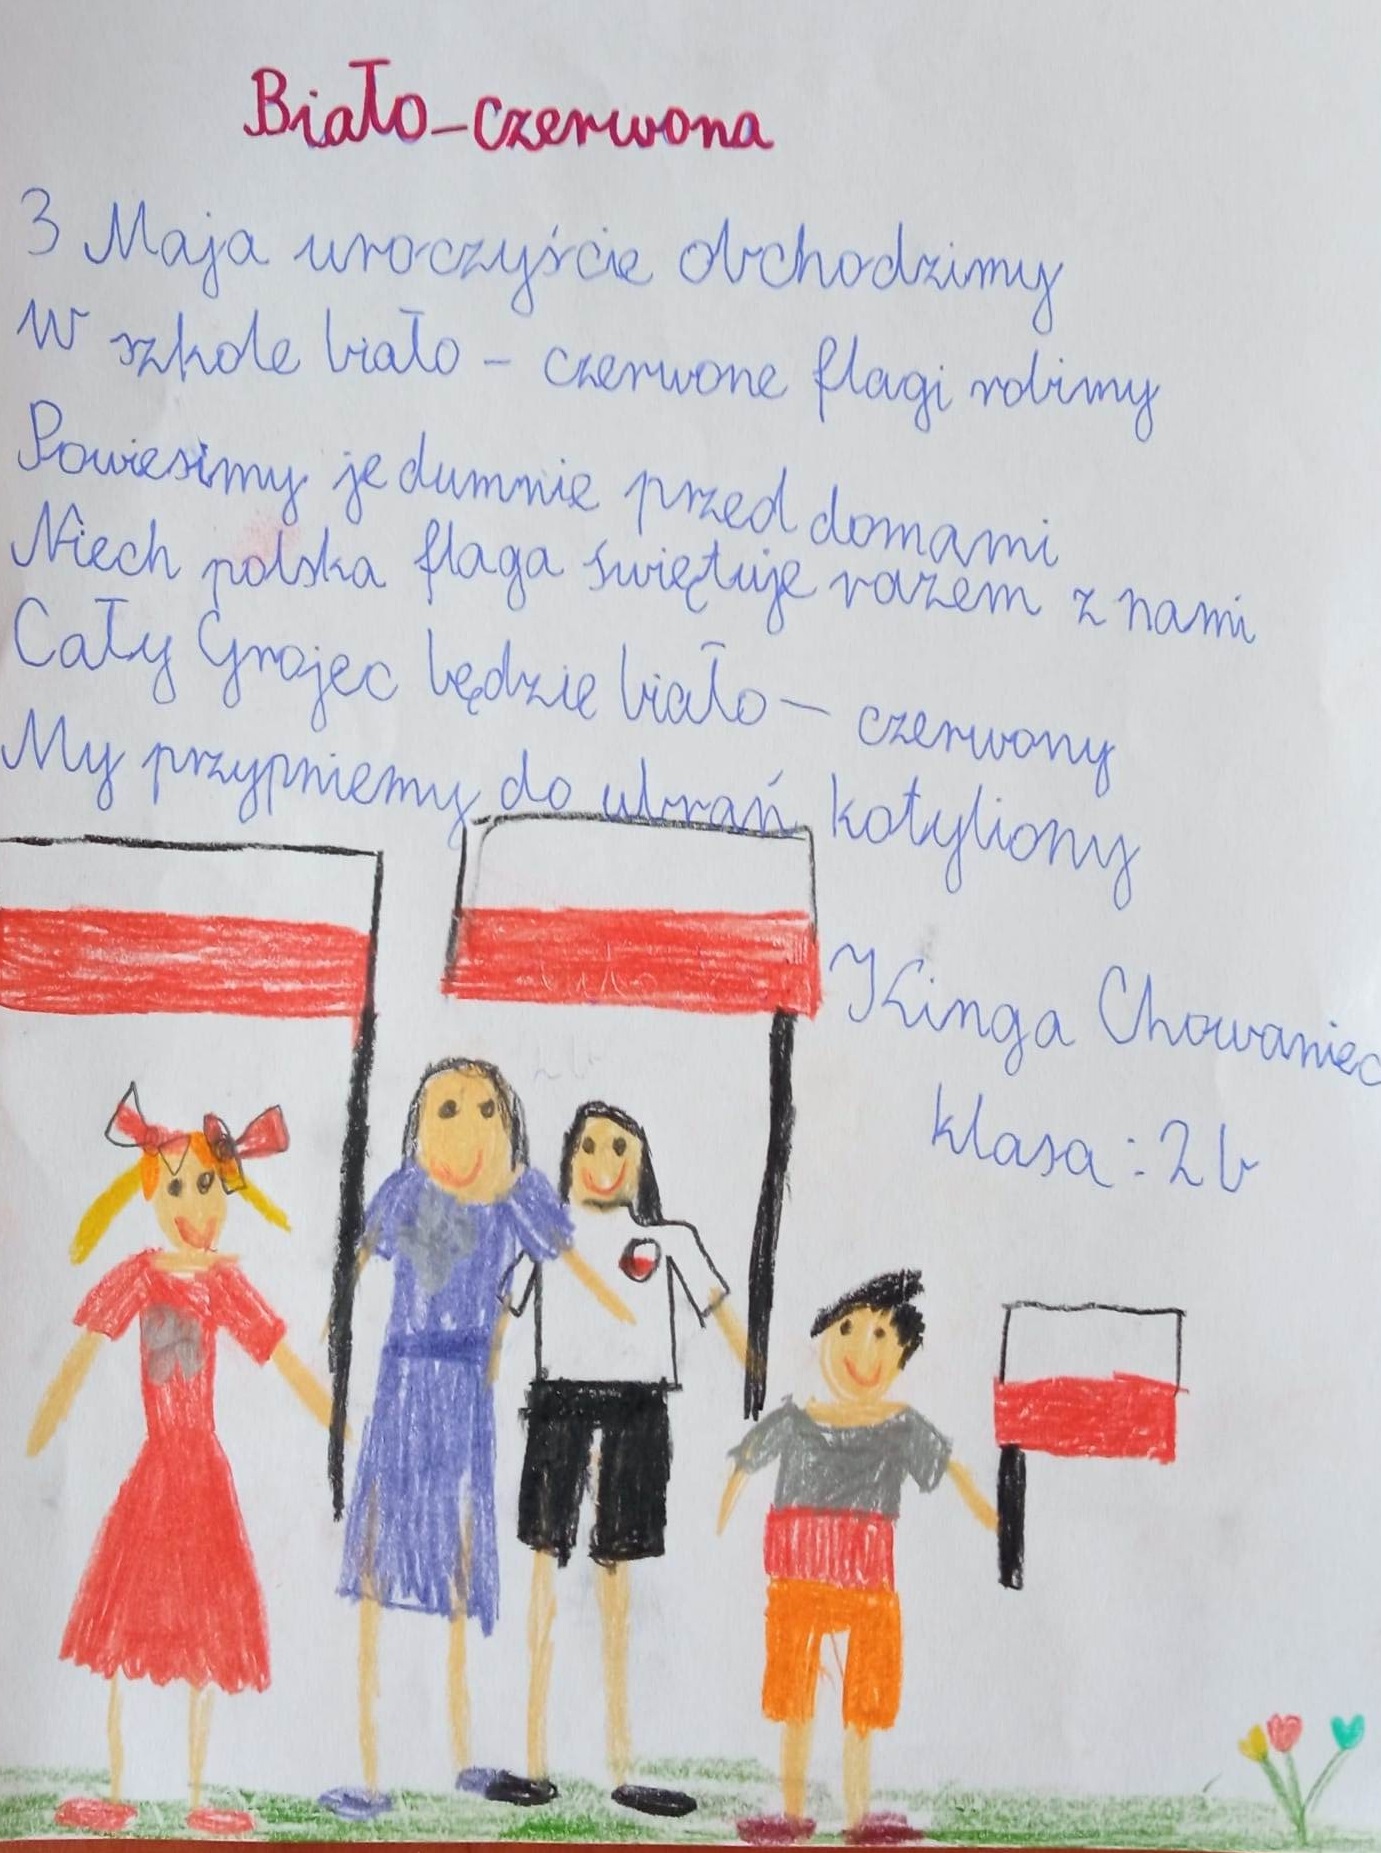 Biało-czerwona
3 Maja uroczyście obchodzimy
W szkole biało - czerwone flagi robimy
Powiesimy je dumnie przed domami
Niech polska flaga świętuje razem z nami
Cały Grojec będzie biało - czerwony
My przypniemy do ubrań kotyliony
Kinga Chowaniec
klasa : 2b